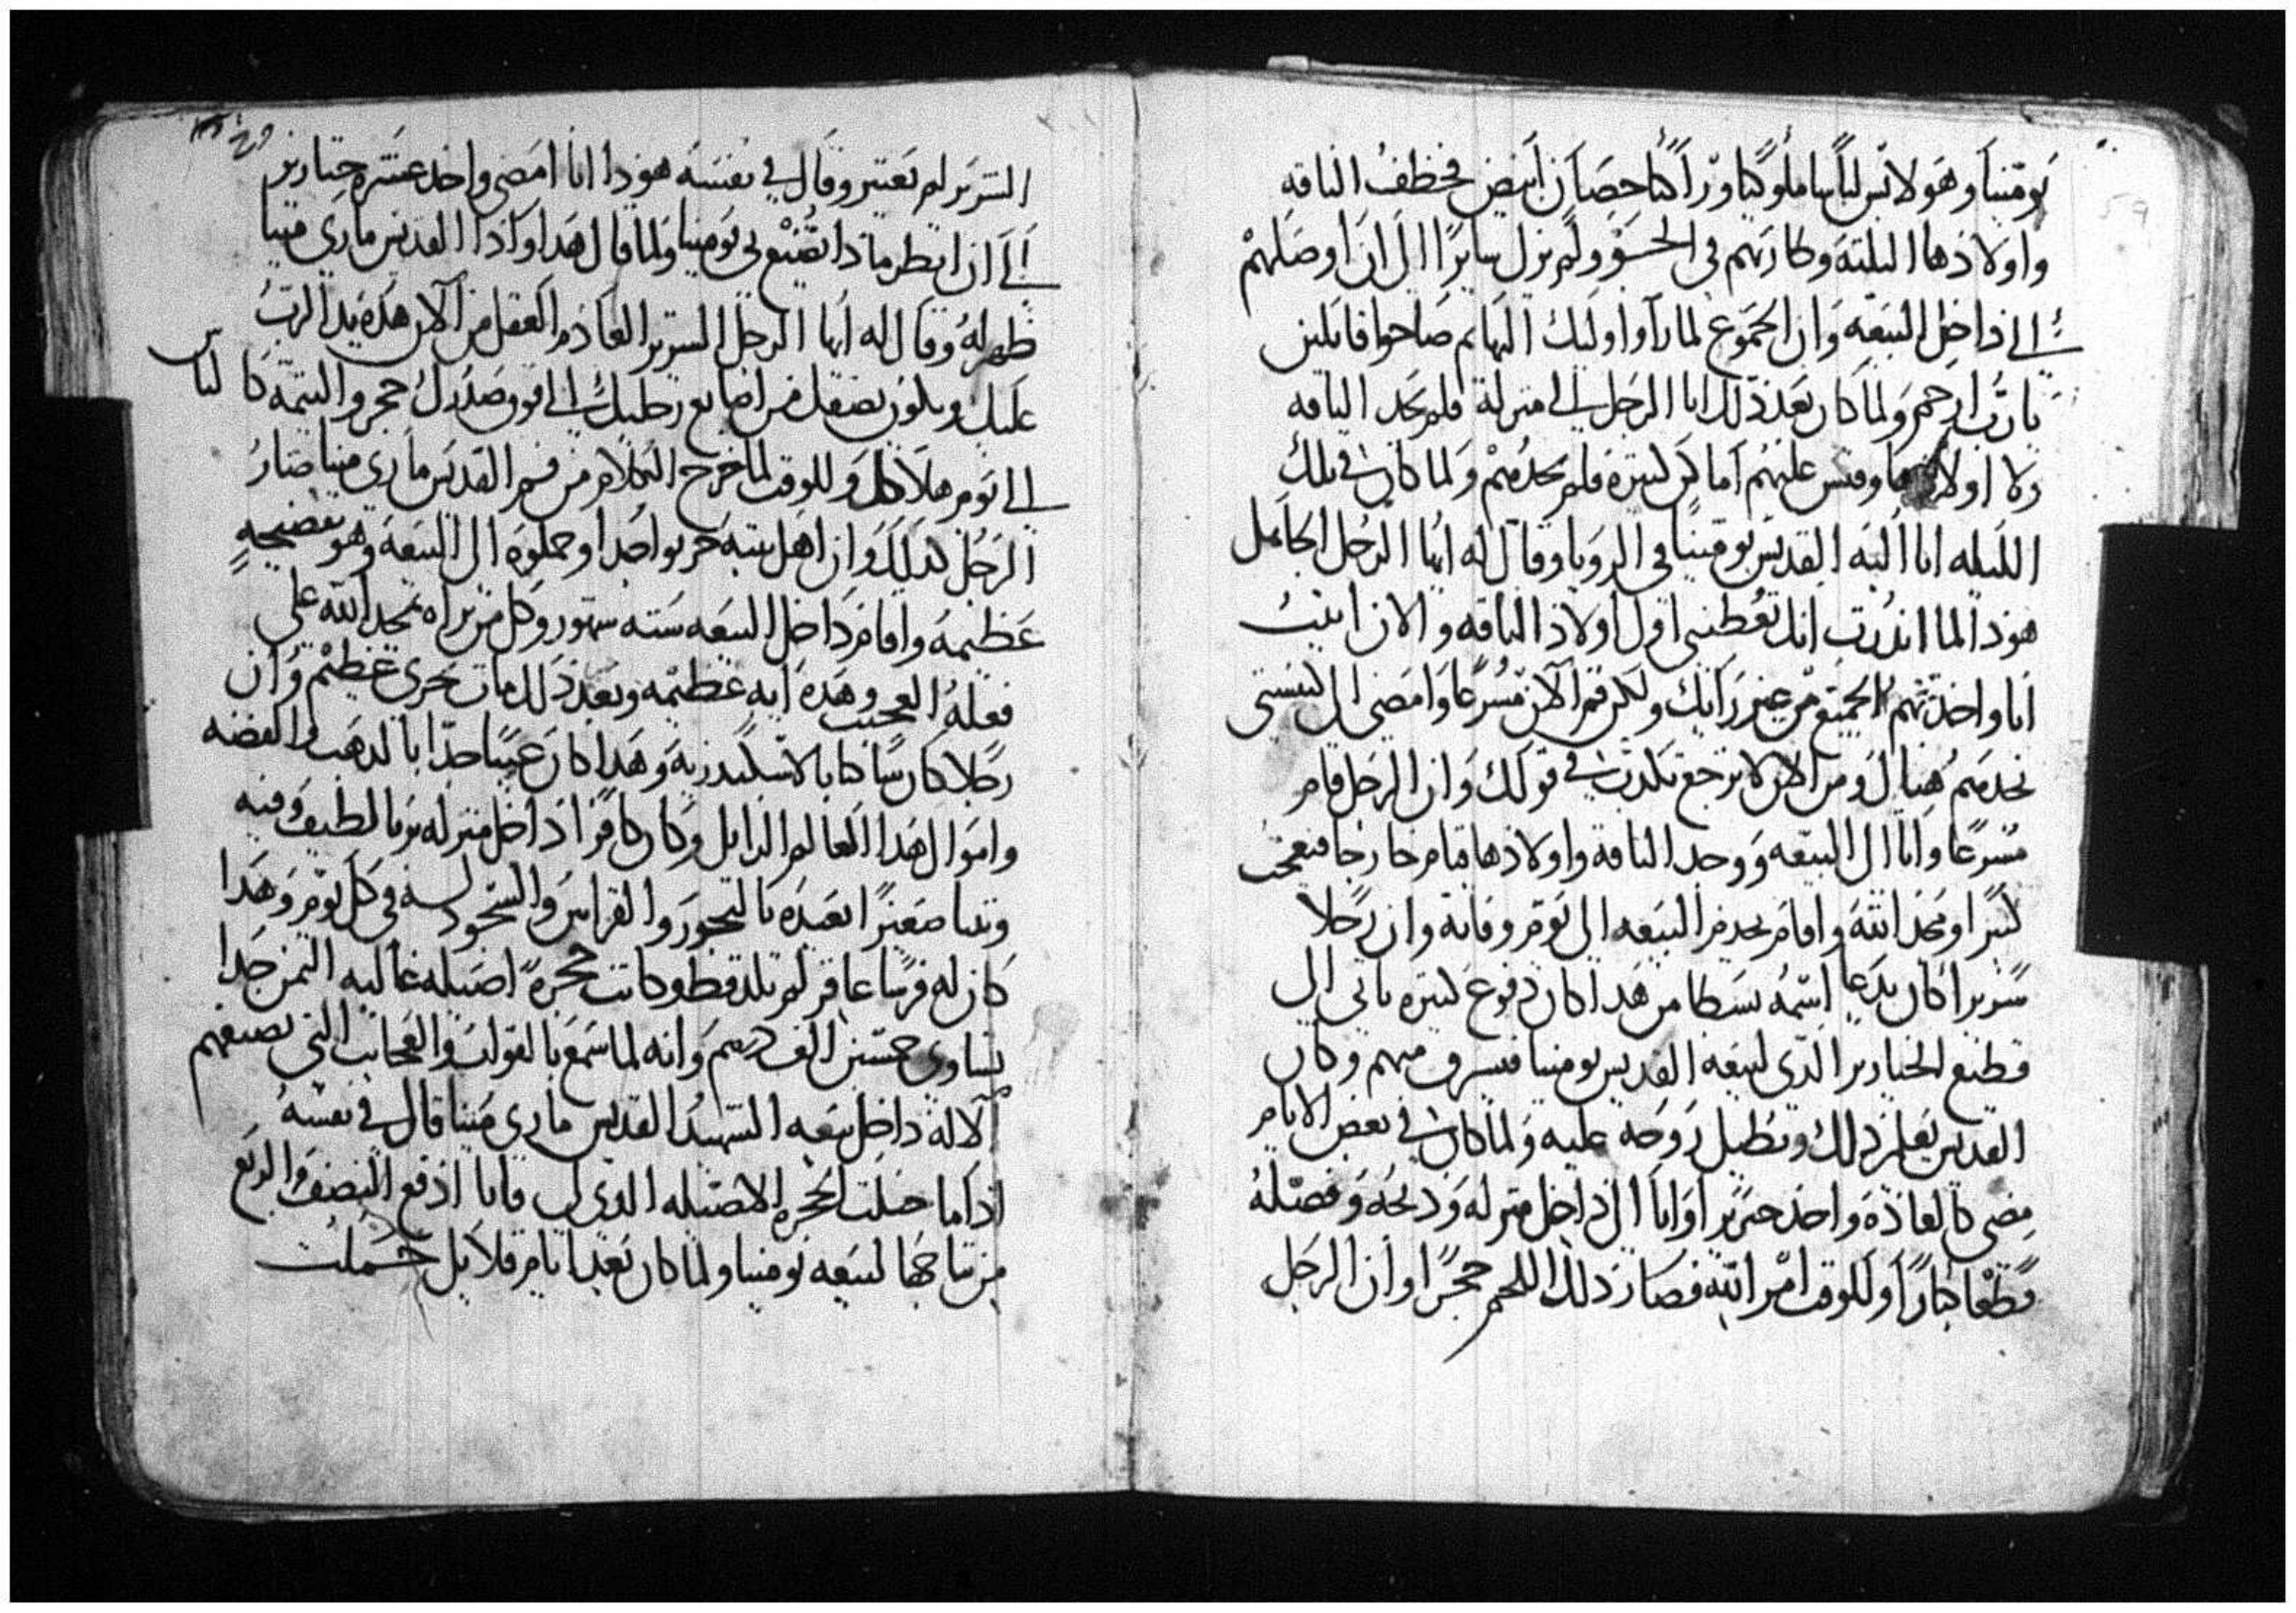 بومينا وهو لابس لباسا ملوكيا وراكبا حصان ابيض فخطف الناقه
واولادها الثلثة وطار بهم في الجو ولم يزل سايرا الى ان اوصلهم
الى داخل البيعه وان الجموع لما راوا اوليك البهايم صاحوا قايلين
يارب ارحم ولما كان بعد ذلك اتا الرجل الى منزله فلم يجد الناقه
ولا اولادها وفتش عليهم اماكن كثيرة فلم يجدهم ولما كان في تلك
الليله اتا اليه القديس بومينا في الرويا وقال له ايها الرجل الجاهل
هوذا لما اندرت انك تعطيني اول اولاد الناقه والان اتيت
انا واخذتهم الجميع من غير رايك ولكن قم الان مسرعا وامضي الى بيعتي
تجدهم هناك ومن الان لا ترجع تكدب في قولك وان الرجل قام
مسرعا واتا الى البيعه ووجد الناقة واولادها قيام خارجا فتعجب
كثيرا ومجد الله واقام يخدم البيعه الى يوم وفاته وان رجلا
شريرا كان يدعا اسمه بسطا من هدا كان دفوع كثيره ياتي الى
قطيع الخنازير الذي لبيعه القديس بومينا فيسرق منهم وكان
القديس يعلم ذلك ويطيل روحه عليه ولما كان في بعض الايام
مضى كالعاده واخذ خنزيرا واتا الى داخل منزله ودبحه وفصله
قطعا كبارا وللوقت امر الله فصار ذلك اللحم حجرا وان الرجل
الشرير لم يعتبر وقال في نفسه هوذا انا امضي واخذ عشره خنازير
الى ان انظر ماذا يصنع بي بومينا ولما قال هدا واذا القديس ماري مينا
ظهر له وقال له ايها الرجل الشرير العادم العقل من الان هذه يد الرب
عليك ويكون نصفك من اصابع رجليك الى فوق صدرك حجر واليتمة كالناس
الى يوم هلاكك وللوقت لما خرج الكلام من فم القديس ماري مينا صار
الرجل كذلك وان اهل بيته حزنوا جدا وحملوه الى البيعه وهو بفضيحه
عظيمه واقام داخل البيعه سته شهور وكل من يراه يمجد الله على
فعله العجيب وهذه ايه عظيمه وبعد ذلك مات بخزي عظيم وان
رجلا كان ساكنا بالاسكندريه وهدا كان غنيا جدا بالدهب والفضه
واموال هدا العالم الزايل وكان كافرا داخل منزله بربا لطيف وفيه
وثنا صغيرا يعبده بالبخور والقرابين والسجود له في كل يوم وهدا
كان له فرسا عاقر لم تلد قط وكانت حجره اصيله غاليه الثمن جدا
تساوي خمسين الف درهم وانه لما سمع بالقوات والعجايب التي يصنعهم
الاله داخل بيعه الشهيد القديس ماري مينا قال في نفسه
اذا ما حبلت الحجره الاصيله الذي لي فانا ادفع النصف والربع
من نتاجها لبيعه بومينا ولما كان بعد ايام قلايل حملت